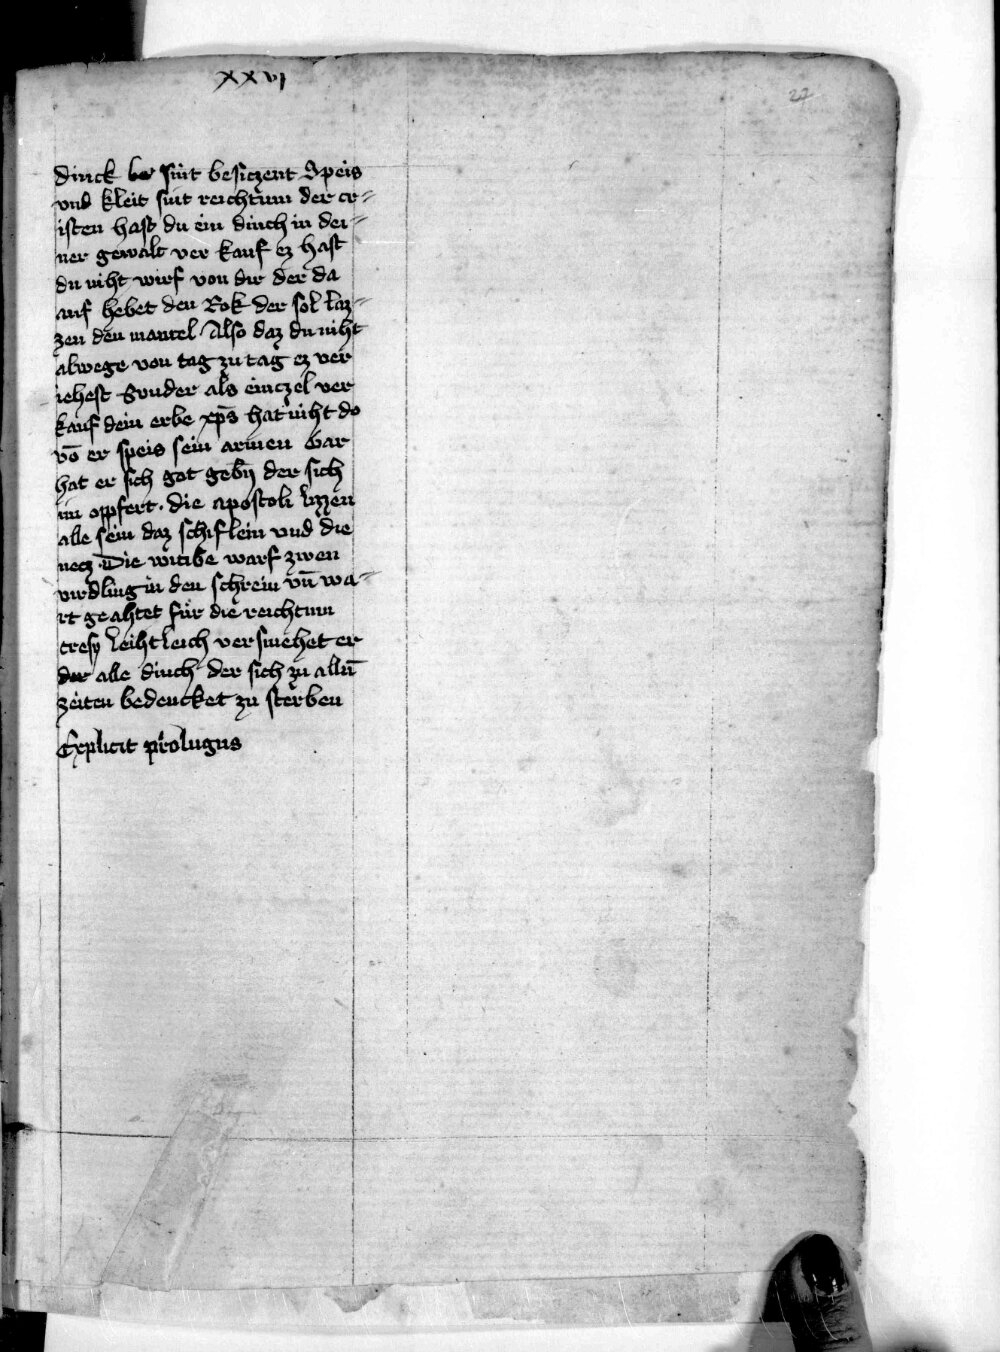 XXVI
27
dinck be sint besiczent Speis
vnd kleit sint reichtum der cr⸗
isten hast du ein dinch in dei⸗
ner gewalt ver kauf ez hast
du niht wirf von dir der da
auf hebet den Rok der sol laz⸗
zen den mantel Also daz du niht
alwege von tag zu tag ez ver
iehest Sunder als einczel ver
kauf dein erbe xp̄s hat niht do
vō er speis sein armen Gar
hat er sich got gebn̄ der sich
im opfert · die apostoli lizzen
alle sein daz schiflein vnd die
necz · Die witibe warf zwen
virdling in den schrein vn̄ wa⸗
rt geahtet für die reichtum
cresy leihtleich versmehet er
der alle dinch der sich zu allū
zeiten bedencket zu sterben
Explicit prolugus